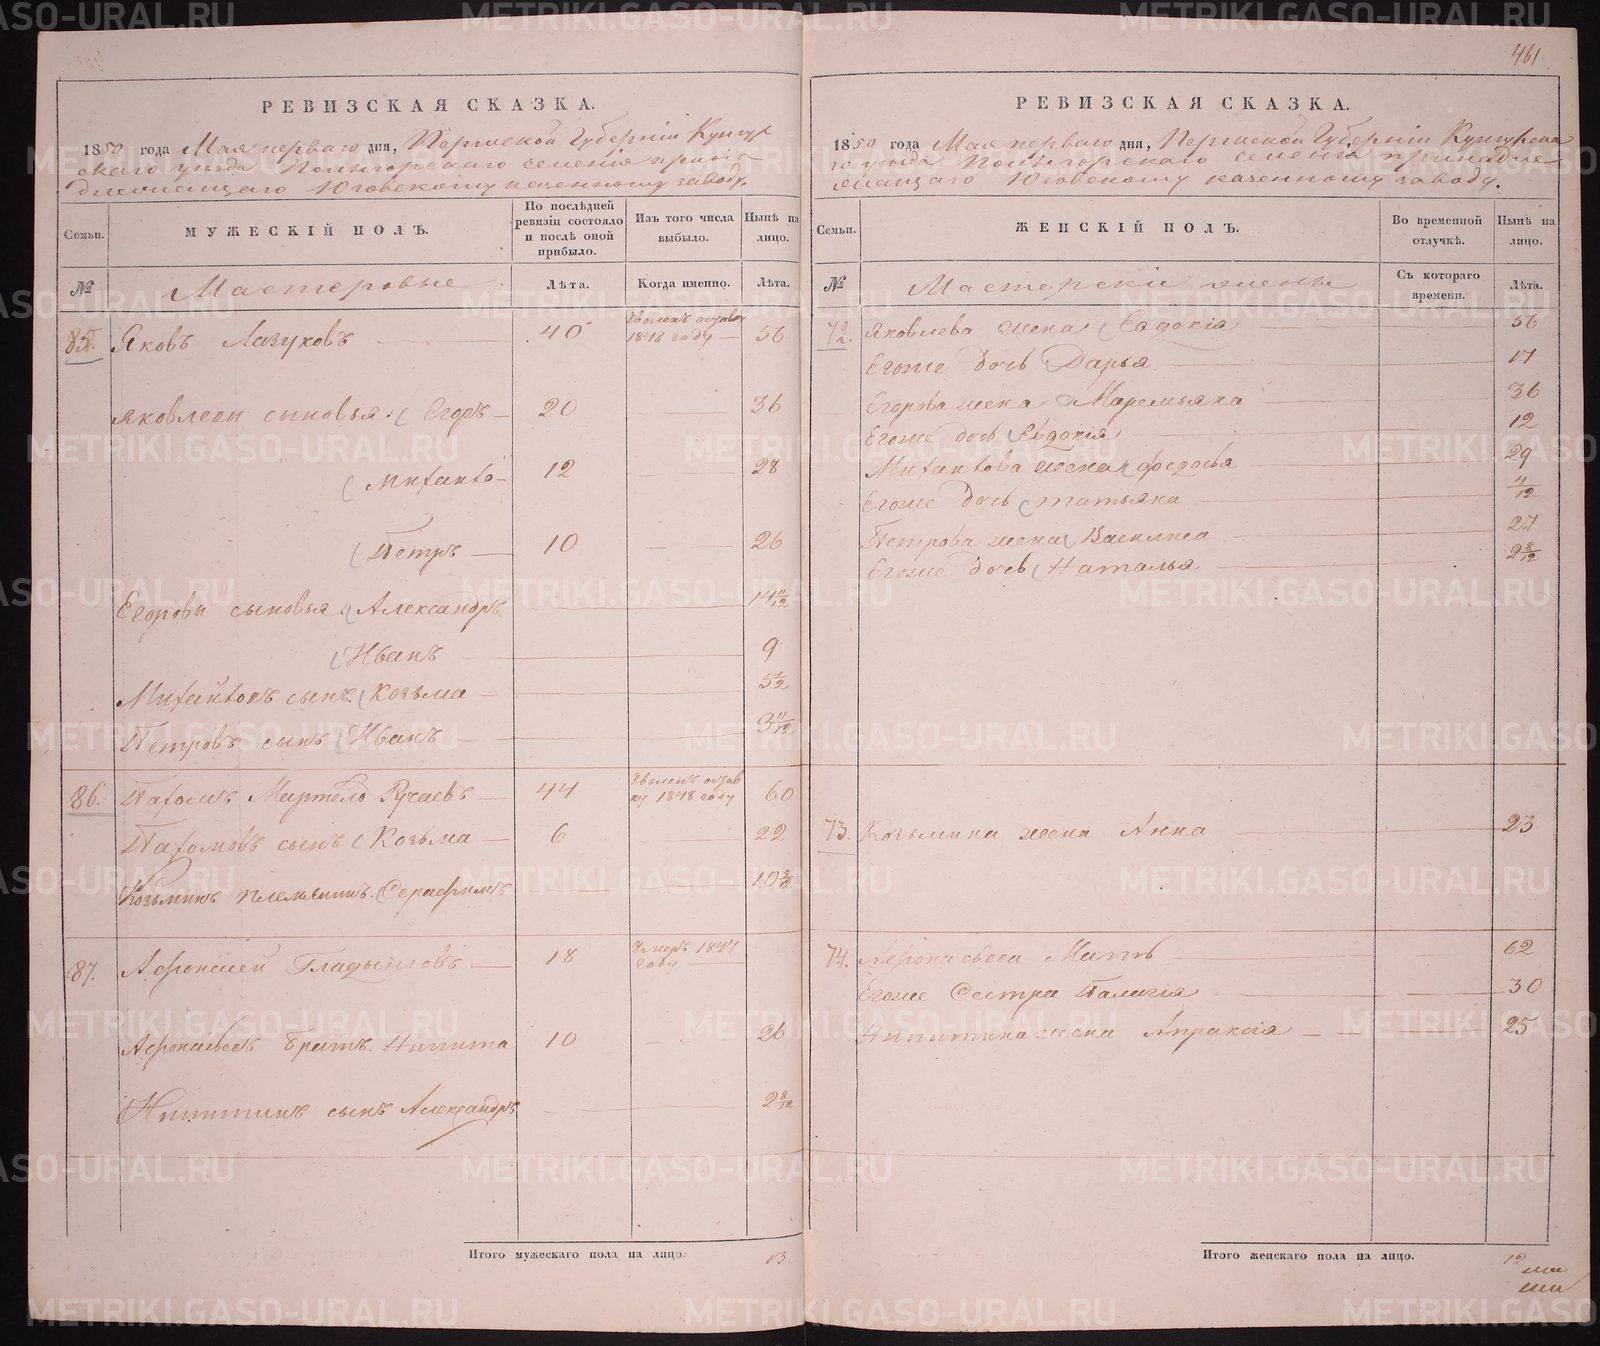 461
РЕВИЗСКАЯ СКАЗКА.
1850 года Мая перваго дня, Пермской Губерніи Кунгур
скаго уезда селенія прина
длежащаго Юговскому казенному заводу.
Семьи.
МУЖЕСКІЙ ПОЛЪ.
По послѣдней ревизіи состояло и послѣ оной прибыло.
Изъ того числа выбыло.
Нынѣ на лицо.
№
Мастеровые
Лѣта.
Когда именно.
Лѣта.
85. Яковъ Лазуковъ 40 1848 году 56
Яковлевы сыновья Егоръ 20 36
12 28
Петръ 10 26
Егоровы сыновья Александръ 14 11/12
Иванъ 9
сынъ Козьма
Петровъ сынъ Иванъ 3 11/12
86. Пахомъ 44 1848 году 60
Пахомовъ сынъ Козьма 6 22
Козьминъ племянникъ Серафимъ
87. Афонасей 18 умеръ году
Афонасьевъ братъ Никита 10 26
Никитинъ сынъ Александръ 2 8/12
Итого мужескаго пола на лицо. 13
РЕВИЗСКАЯ СКАЗКА.
1850 года Мая перваго дня, Пермской Губерніи Кунгурска
го уезда селенія принадле
жащаго Юговскому казенному заводу.
Семьи.
ЖЕНСКІЙ ПОЛЪ.
Во временной отлучкѣ.
Нынѣ на лицо.
№
Мастерскіе жены
Съ котораго времени.
Лѣта.
72. Яковлева жена Евдокія 56
Егоже дочь Дарья 17
Егорова жена Маремьяна 36
Егоже дочь Евдокія 12
жена Федосья 29
Егоже дочь Татьяна 4/12
Петрова жена Василиса 27
Егоже дочь Наталья 2 8/12
73. Козьмина жена Анна 23
74. Афонасьева Мать 62
Егоже Сестра Палагія 30
Никитина жена Апраксія 25
Итого женскаго пола на лицо. 12
METRIKI.GASO-URAL.RU